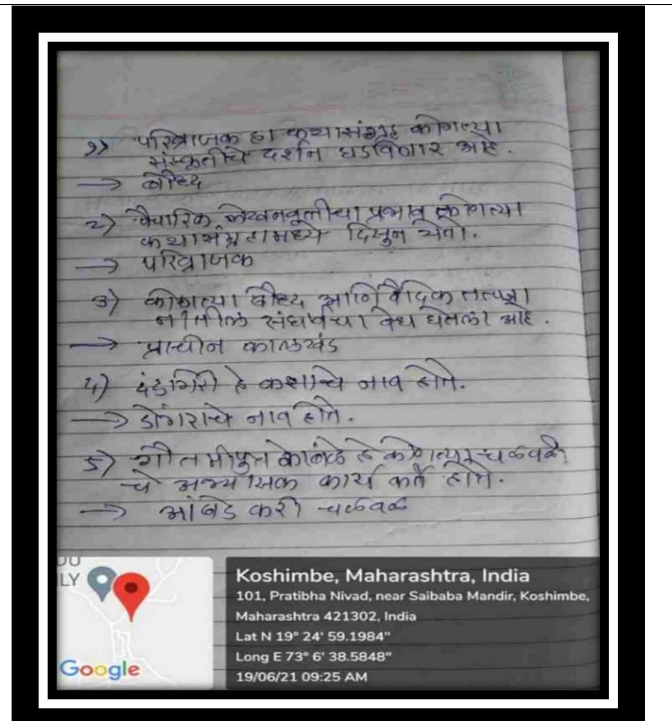 १) परिव्राजक हा कथासंग्रह कोणत्या
संस्कृतीचे दर्शन घडविणार आहे.
→ बौध्द
२) वैचारिक लेखनवृत्तीचा प्रभाव कोणत्या
कथासंग्रहामध्ये दिसुन येतो.
→ परिव्राजक
३) कोणत्या बौध्द आणि वैदिक तत्वज्ञा
नातील संघर्षचा वेध घेतला आहे.
→ प्राचीन कालखंड
४) दंडगिरी हे कशाचे नाव होते.
→ डोंगराचे नाव होते.
५) गौतमीपुत्र कांबळे हे कोणत्या चळवळी
चे अभ्यासक कार्य कर्ते होते.
→ आंबेडकरी चळवळ
LY
Google
Koshimbe, Maharashtra, India
101, Pratibha Nivad, near Saibaba Mandir, Koshimbe,
Maharashtra 421302, India
Lat N 19° 24' 59.1984"
Long E 73° 6' 38.5848"
19/06/21 09:25 AM